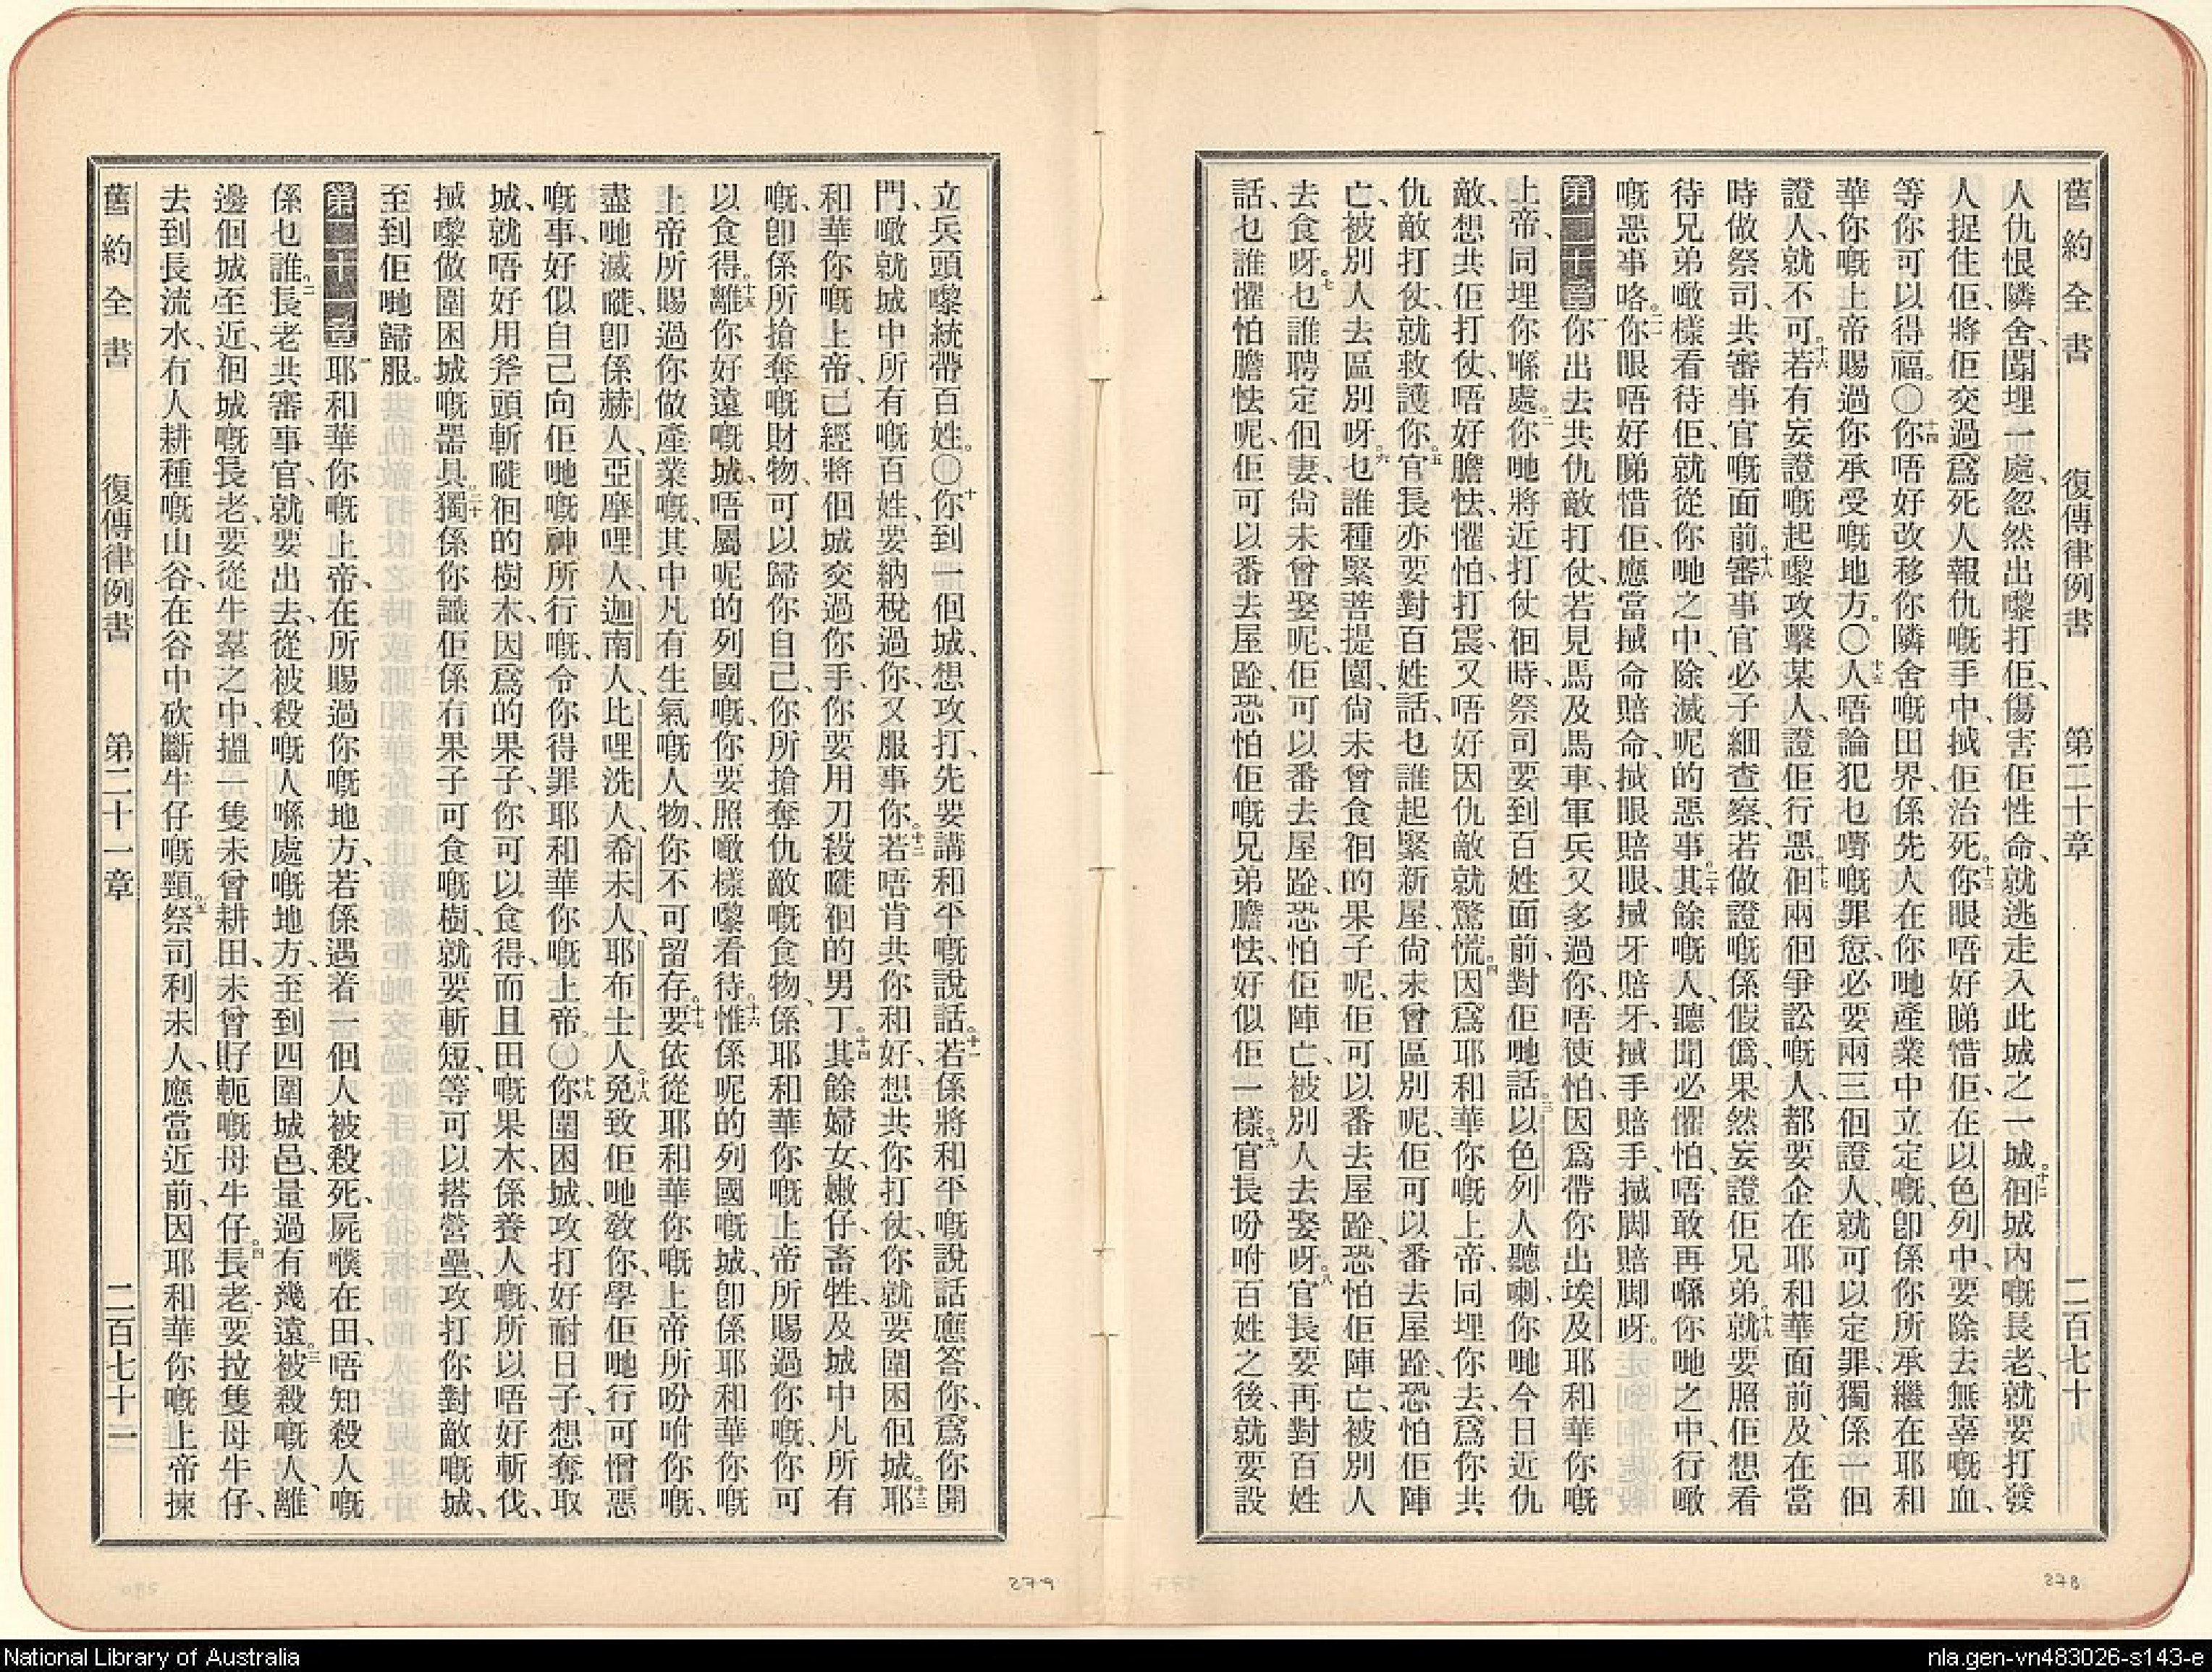 舊約全書 復傳律例書 第二十章 二百七十
人仇恨隣舍、匿埋一處、忽然出嚟打佢、傷害佢性命、就逃走入此城之一城。十二個城內嘅長老、就要打發
人捉住佢、將佢交過為死人報仇嘅手中、搣佢治死。十三你眼唔好睇惜佢、在以色列中、要除去無辜嘅血、
等你可以得福。〇十四你唔好改移你隣舍嘅田界、係先人在你哋產業中立定嘅、卽係你所承繼在耶和
華你嘅上帝賜過你承受嘅地方。〇十五人唔論犯乜嘢嘅罪愆、必要兩三個證人、就可以定罪、獨係一個
證人、就不可。十六若有妄證嘅起嚟攻擊某人、證佢行惡。十七個兩個爭訟嘅人、都要企在耶和華面前、及在當
時做祭司、共審事官嘅面前。十八審事官必子細查察、若做證嘅係假僞、果然妄證佢兄弟。十九就要照佢想看
待兄弟噉樣看待佢、就從你哋之中、除滅呢的惡事。二十其餘嘅人、聽聞必懼怕、唔敢再喺你哋之中、行噉
嘅惡事咯。二一你眼唔好睇惜佢、應當搣命賠命、搣眼賠眼、搣牙賠牙、搣手賠手、搣脚賠脚呀。
第二十章 一你出去共仇敵打仗、若見馬及馬車、軍兵又多過你、唔使怕、因為帶你出埃及耶和華你嘅
上帝、同埋你喺處。二你哋將近打仗個時、祭司要到百姓面前、對佢哋話。三以色列人聽喇、你哋今日近仇
敵、想共佢打仗、唔好膽怯、懼怕、打震、又唔好因仇敵就驚慌。四因為耶和華你嘅上帝、同埋你去、為你共
仇敵打仗、就救護你。五官長亦要對百姓話、乜誰起緊新屋、尙未曾區別呢、佢可以番去屋跎、恐怕佢陣
亡、被別人去區別呀。六乜誰種緊菩提園、尙未曾食個的果子呢、佢可以番去屋跎、恐怕佢陣亡、被別人
去食呀。七乜誰聘定個妻、尙未曾娶呢、佢可以番去屋跎、恐怕佢陣亡、被別人去娶呀。八官長要再對百姓
話、乜誰懼怕膽怯呢、佢可以番去屋跎、恐怕佢嘅兄弟膽怯、好似佢一樣。九官長吩咐百姓之後、就要設
立兵頭嚟統帶百姓。〇十你到一個城、想攻打、先要講和平嘅說話。十一若係將和平嘅說話應答你、為你開
門、噉就城中所有嘅百姓、要納稅過你、又服事你。十二若唔肯共你和好、想共你打仗、你就要圍困個城。十三耶
和華你嘅上帝、已經將個城交過你手、你要用刀殺嘥個的男丁。十四其餘婦女、嫩仔、畜牲、及城中凡所有
嘅、卽係所搶奪嘅財物、可以歸你自己、你所搶奪仇敵嘅食物、係耶和華你嘅上帝所賜過你嘅、你可
以食得。十五離你好遠嘅城、唔屬呢的列國嘅、你要照噉樣嚟看待。十六惟係呢的列國嘅城、卽係耶和華你嘅
上帝所賜過你做產業嘅、其中凡有生氣嘅人物、你不可留存。十七要依從耶和華你嘅上帝所吩咐你嘅、
盡哋滅嘥、卽係赫人、亞摩哩人、迦南人、比哩洗人、希未人、耶布士人。十八免致佢哋敎你、學佢哋行可憎惡
嘅事、好似自己向佢哋嘅神所行嘅、令你得罪耶和華你嘅上帝。〇十九你圍困城、攻打好耐日子、想奪取
城、就唔好用斧頭斬嘥個的樹木、因為的果子、你可以食得、而且田嘅果木、係養人嘅、所以唔好斬伐。
二十獨係你識佢係冇果子可食嘅樹、就要斬短、等可以搭營壘、攻打你對敵嘅城、
搣嚟做圍困城嘅器具
至到佢哋歸服。
第二十一章 一耶和華你嘅上帝、在所賜過你嘅地方、若係遇着一個人被殺死、屍喺在田、唔知殺人嘅
係乜誰。二長老共審事官、就要出去、從被殺嘅人喺處嘅地方、至到四圍城邑、量過有幾遠。三被殺嘅人、離
邊個城至近、個城嘅長老、要從牛羣之中、搵一隻未曾耕田、未曾孭軛嘅母牛仔。四長老要拉隻母牛仔、
去到長流水、冇人耕種嘅山谷、在谷中砍斷牛仔嘅頸。五祭司利未人、應當近前、因耶和華你嘅上帝揀
舊約全書 復傳律例書 第二十一章 二百七十一
279
278
National Library of Australia
nla.gen-vn483026-s143-e